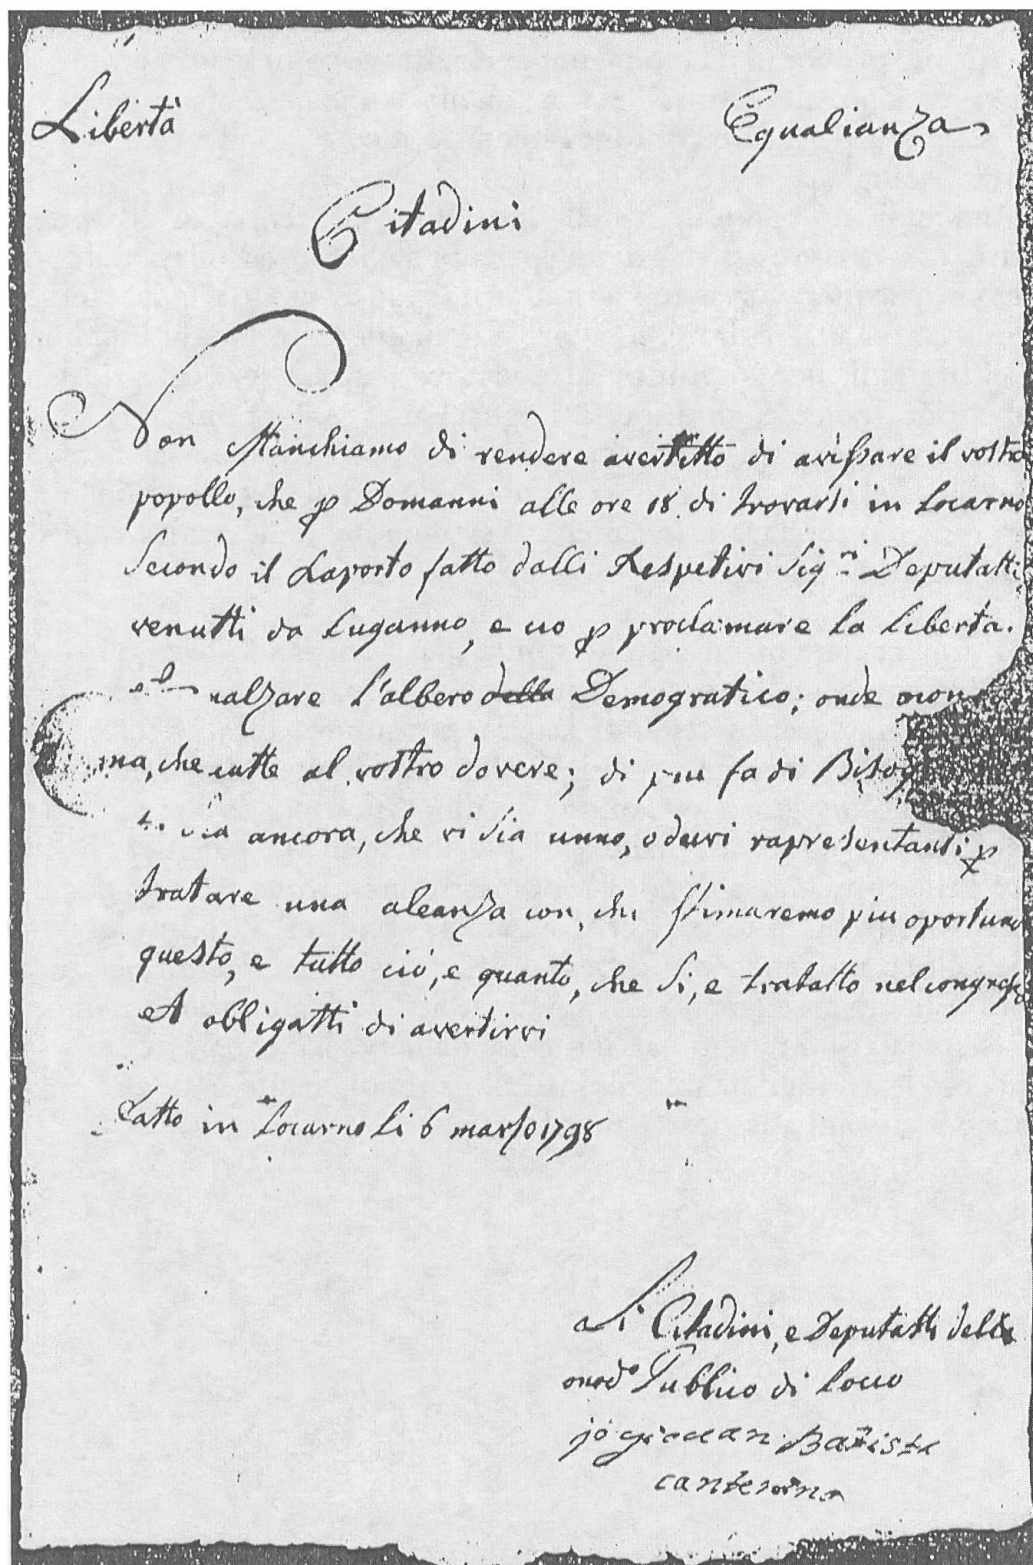 Libertà Egualianza
Citadini
Non Manchiamo di rendere avertitto di avissare il vostro
popollo, che p Domanni alle ore 18 di trovarsi in Locarno
Secondo il Raporto fatto dalli Respetivi Sig.ri Deputatti
venutti da Luganno, e cio p proclamare la libertà.
nalzare l'albero della Demogratico; onde non
ma, che al vostro dovere; di piu fa di Bisog
ancora, che vi sia unno, o duvi rapresentanti p
tratare una aleanza con, chi stimaremo piu oportuno
questo, e tutto ciò, e quanto, che si, e tratatto nel congresso
obligatti di avertirvi
Datto in Locarno li 6 marso 1798
Li Citadini, e Deputatti dello
Publico di Loco
jo giovan Batista